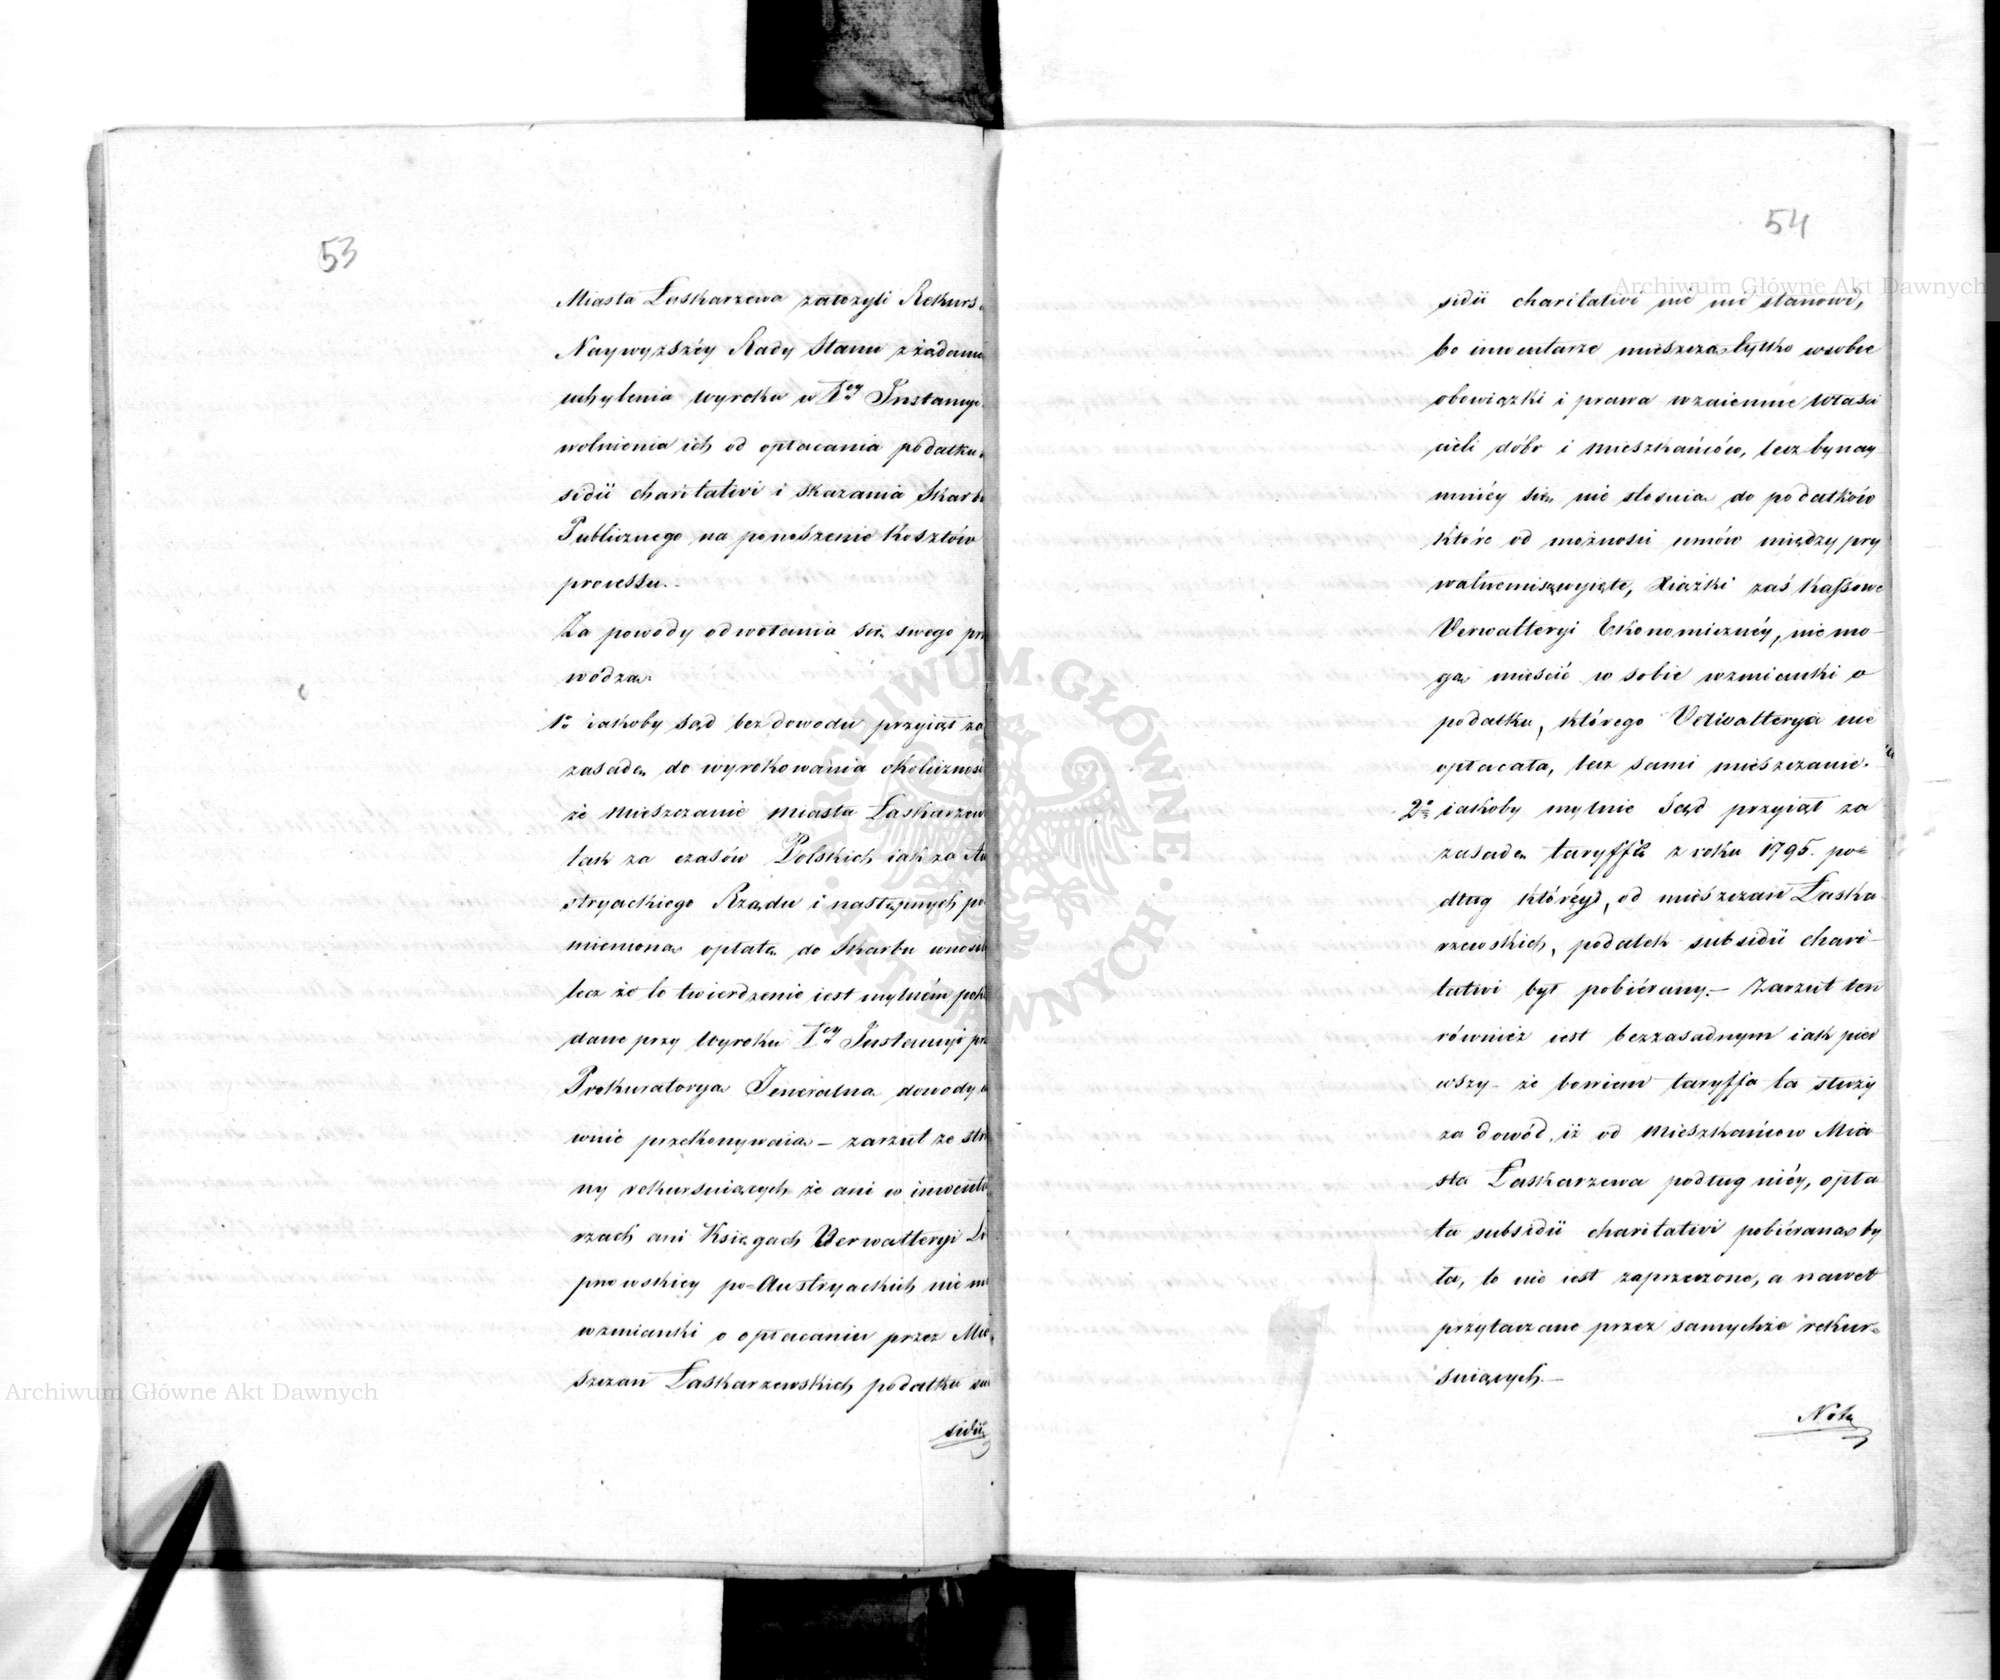 53
Miasta Łaskarzewa założyli Rekurs
Naywyższéy Rady Stanu z żądani
uchylenia wyroku w Iey Instancyi
wolnienia ich od opłacania podatku
sidii charitativi i skazania Skarb
Publicznego na ponoszenie kosztów
processu.-
Za powody odwołania się swego prz
wodzą.
1o iakoby Sąd bez dowodu przyiął za
zasadę do wyrokowania okoliczność
że Mieszczanie Miasta Łaskarzew
tak za czasów Polskich iak za Au
stryackiego Rządu i następnych po
mienioną opłatę do Skarbu wnosi
lecz że to twierdzenie iest mylném
dane przy wyroku Iey Instancyi prz
Prokuratoryą Jeneralną dowody
wnie przekonywaią – zarzut ze stro
ny rekursuiących że ani w inwenta
rzach ani Księgach Verwalteryi Li
pnowskiey po=Austryackich nie ma
wzmianki o opłacaniu przez Mie
szczan Łaskarzewskich podatku su
sidii
54
sidii charitativi nic nie stanowi,
bo inwentarze mieszczą tylko w sobie
obowiązki i prawa wzaiemne właści
cieli dóbr i Mieszkańców, lecz bynay
mniéy się nie stosuią do podatków
które od możności umów między pry
watnemi są wyięte, Xiążki zaś Kassowe
Verwalteryi Ekonomicznéy, nie mo-
gą mieścić w sobie wzmianki o
podatku, którego Verwalterya nie
opłacała, lecz sami mieszczanie.
2o iakoby mylnie Sąd przyiął za
zasadę taryffę z roku 1795. po=
dług któréy, od mieszczan Łaska
rzewskich, podatek subsidii chari-
tativi był pobiérany.– Zarzut ten
również iest bezzasadnym iak pier
wszy – że bowiem taryffa ta służy
za dowód, iż od Mieszkańcow Mia
sta Łaskarzewa podług niéy, opła
ta subsidii charitativi pobiéraną by
ła, to nie iest zaprzeczone, a nawet
przytaczane przez samychże rekur=
suiących.–
Nota
Archiwum Główne Akt Dawnych
Archiwum Główne Akt Dawnych
ARCHIWUM GŁÓWNE AKT DAWNYCH